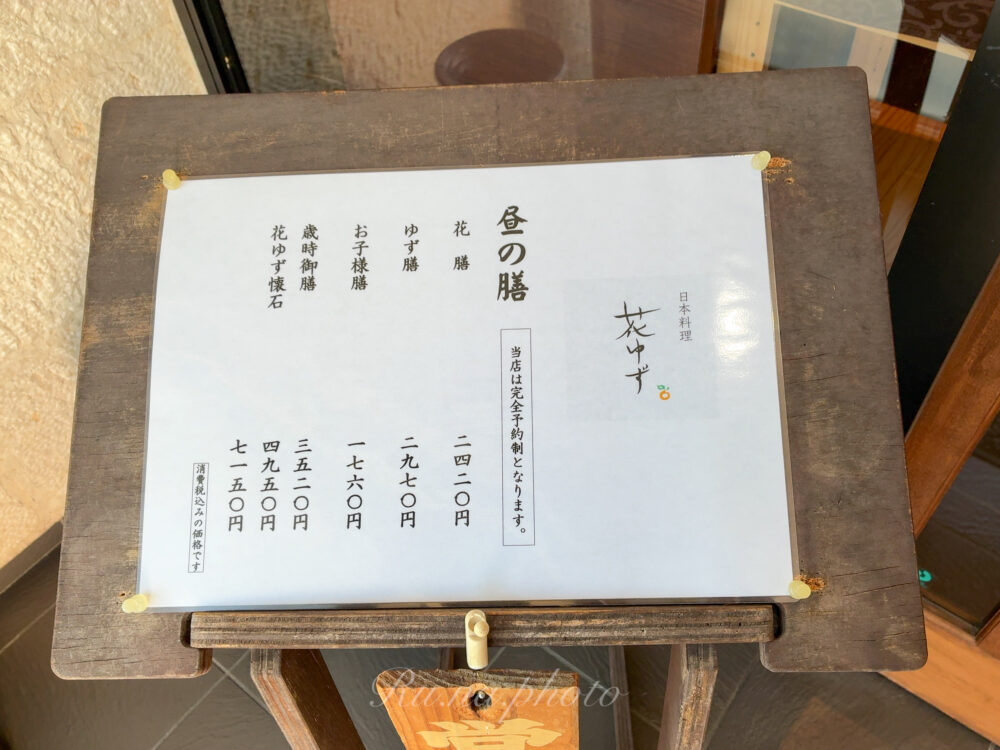 日本料理
花ゆず
昼の膳
当店は完全予約制となります。
花 膳 二四二〇円
ゆず膳 二九七〇円
お子様膳 一七六〇円
歳時御膳 三五二〇円
花ゆず懐石 四九五〇円
七一五〇円
消費税込みの価格です
Ru.na.photo
営